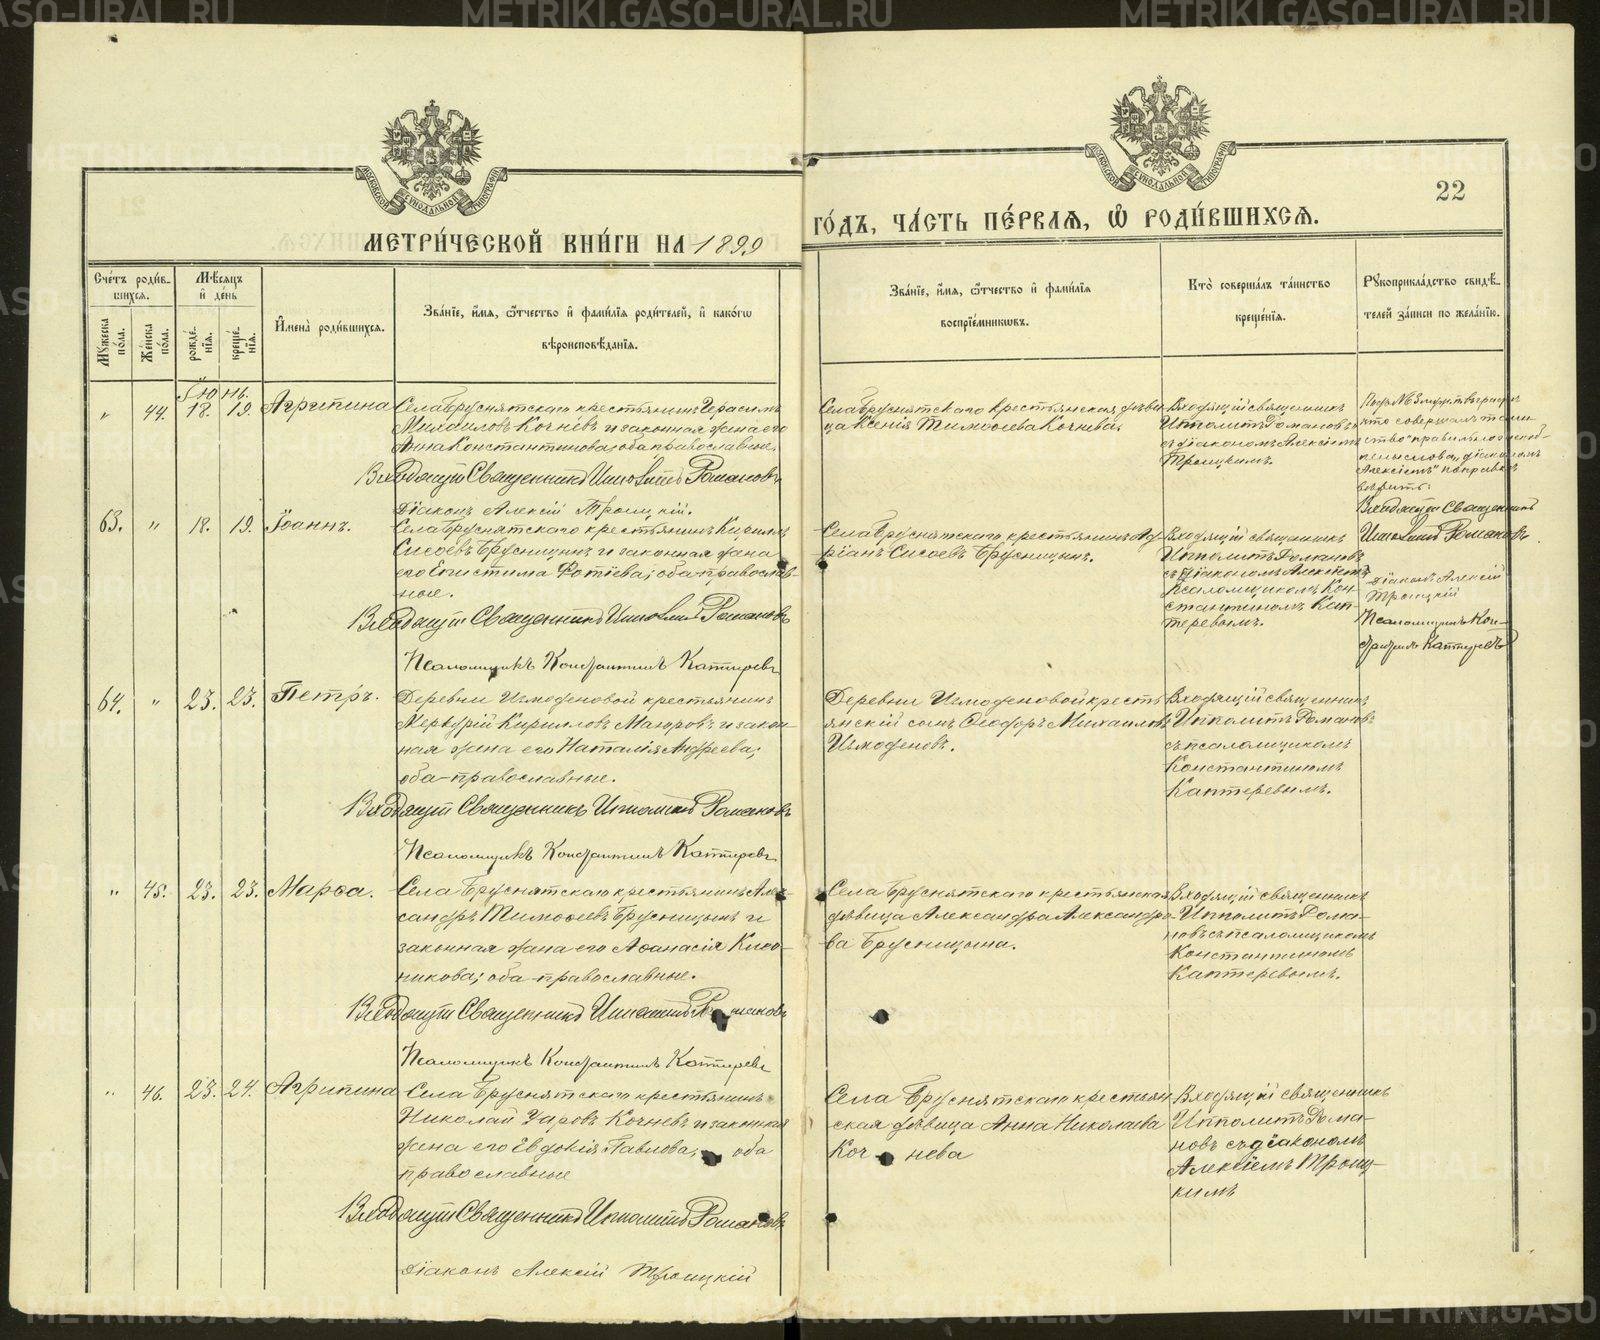 METRIKI.GASO-URAL.RU
22
МЕТРИ́ЧЕСКОЙ КНИ́ГИ НА 1899
ГО́ДЪ, ЧА́СТЬ ПЕ́РВАЯ, Ѡ҆ РОДИ́ВШИХСЯ.
Сче́тъ роди́вшихся.
Мꙋ́жеска по́ла.
Же́нска по́ла.
Мѣ́сяцъ и҆ де́нь
рожде́нїя.
креще́нїя.
И҆мена̀ роди́вшихся.
Зва́нїе, и҆́мя, ѻ҆́тчество и҆ фами́лїя роди́телей, и҆ како́гѡ
вѣроисповѣ́данїя.
Зва́нїе, и҆́мя, ѻ҆́тчество и҆ фами́лїя
воспрїе́мникѡвъ.
Кто̀ соверша́лъ та́инство
креще́нїя.
Рꙋкоприкла́дство свидѣ́телей за́писи по жела́нїю.
Іюнь.
" 44. 18. 19. Агрипина
Села Бруснятскаго крестьянинъ Герасимъ
Михаиловъ Кочневъ и законная жена его
Анна Константинова; оба православные.
Входящій Священникъ Ипполитъ Романовъ
Діаконъ Алексій Троицкій.
Села Бруснятскаго крестьянская дѣви
ца Ксенія Тимофеева Кочнева.
Входящій священникъ
Ипполитъ Романовъ
съ діакономъ Алексіемъ
Троицкимъ.
кто совершалъ таин
ство"
діакономъ
Алексіемъ"
вѣрить:
Входящій Священникъ
Ипполитъ Романовъ
Діаконъ Алексій
Троицкій
Псаломщикъ Кон-
стантинъ Каптеревъ
63. " 18. 19. Іоаннъ.
Села Бруснятскаго крестьянинъ Кирилъ
Сисоевъ Брусницынъ и законная жена
его Епистима Фотіева; оба православ-
ные.
Входящій Священникъ Ипполитъ Романовъ
Псаломщикъ Константинъ Каптеревъ
Села Бруснятскаго крестьянинъ Ад-
ріанъ Сисоевъ Брусницынъ.
Входящій священникъ
Ипполитъ Романовъ
съ діакономъ Алексіемъ
псаломщикомъ Кон-
стантиномъ Кап-
теревымъ.
64. " 23. 23. Петръ.
Деревни Измоденовой крестьянинъ
Меркурій Кирилловъ Маюровъ и закон-
ная жена его Наталія Андреева;
оба-православные.
Входящій Священникъ Ипполитъ Романовъ
Псаломщикъ Константинъ Каптеревъ
Деревни Измоденовой кресть
янскій сынъ Ѳеодоръ Михаиловъ
Измоденовъ.
Входящій священникъ
Ипполитъ Романовъ
съ псаломщикомъ
Константиномъ
Каптеревымъ.
" 45. 23. 23. Марѳа.
Села Бруснятскаго крестьянинъ Алек-
сандръ Тимоѳеевъ Брусницынъ и
законная жена его Аѳанасія
никова; оба-православные.
Входящій Священникъ Ипполитъ Романовъ
Псаломщикъ Константинъ Каптеревъ
Села Бруснятскаго крестьянская
дѣвица Александра Александро-
ва Брусницына.
Входящій священникъ
Ипполитъ Рома-
новъ съ псаломщикомъ
Константиномъ
Каптеревымъ.
" 46. 23. 24. Агрипина
Села Бруснятскаго крестьянинъ
Николай Уаровъ Кочневъ и законная
жена его Евдокія Павлова; оба
православные
Входящій Священникъ Ипполитъ Романовъ
Діаконъ Алексій Троицкій
Села Бруснятскаго крестьян
ская дѣвица Анна Николаева
Кочнева
Входящій священникъ
Ипполитъ Рома-
новъ съ діакономъ
Алексіемъ Троиц-
кимъ